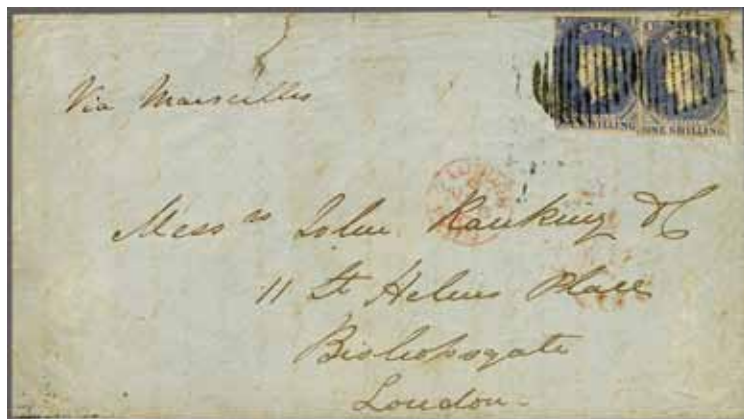 CEYLON CEYLON
ONE SHILLING ONE SHILLING
Via Marseilles
Mess rs John Ranking & C
11 St Helens Place
Bishopsgate
London